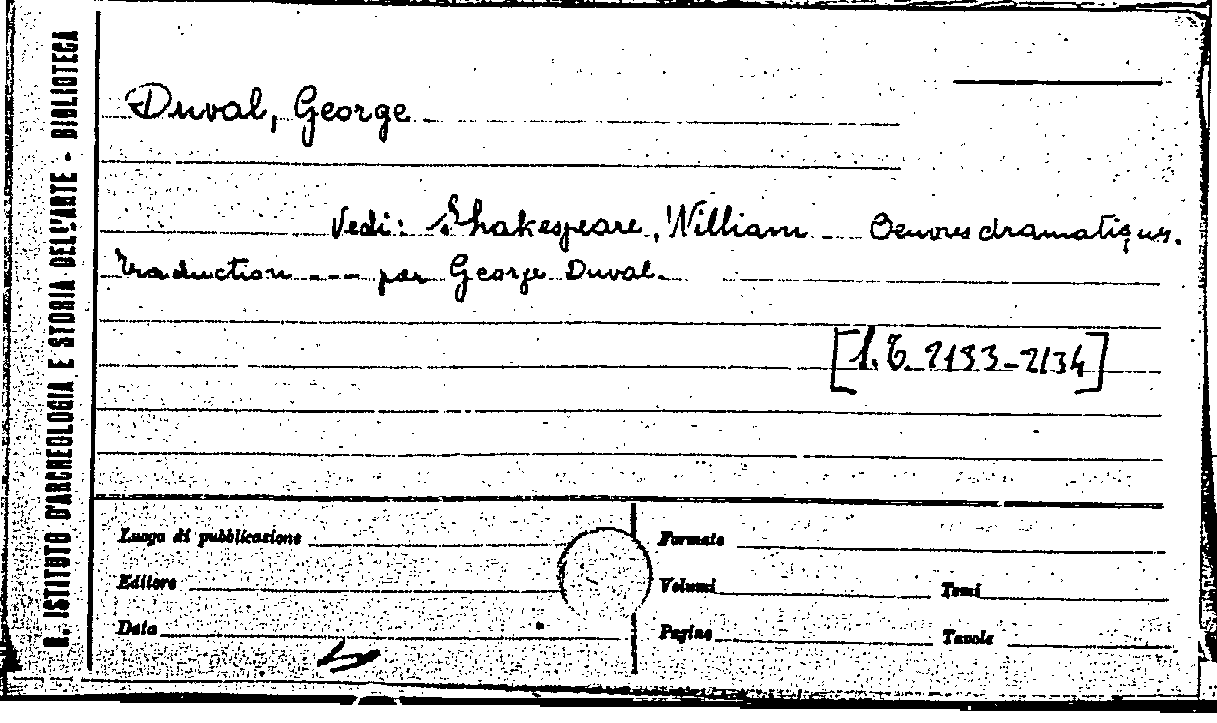 R. ISTITUTO D'ARCHEOLOGIA E STORIA DELL'ARTE - BIBLIOTECA
Duval, George
Vedi: Shakespeare, William - Oeuvres dramatiques.
Traduction --- par George Duval.
[1.6.2133-2134]
Luogo di pubblicazione
Formato
Editore
Volumi
Tomi
Data
Pagine
Tavole